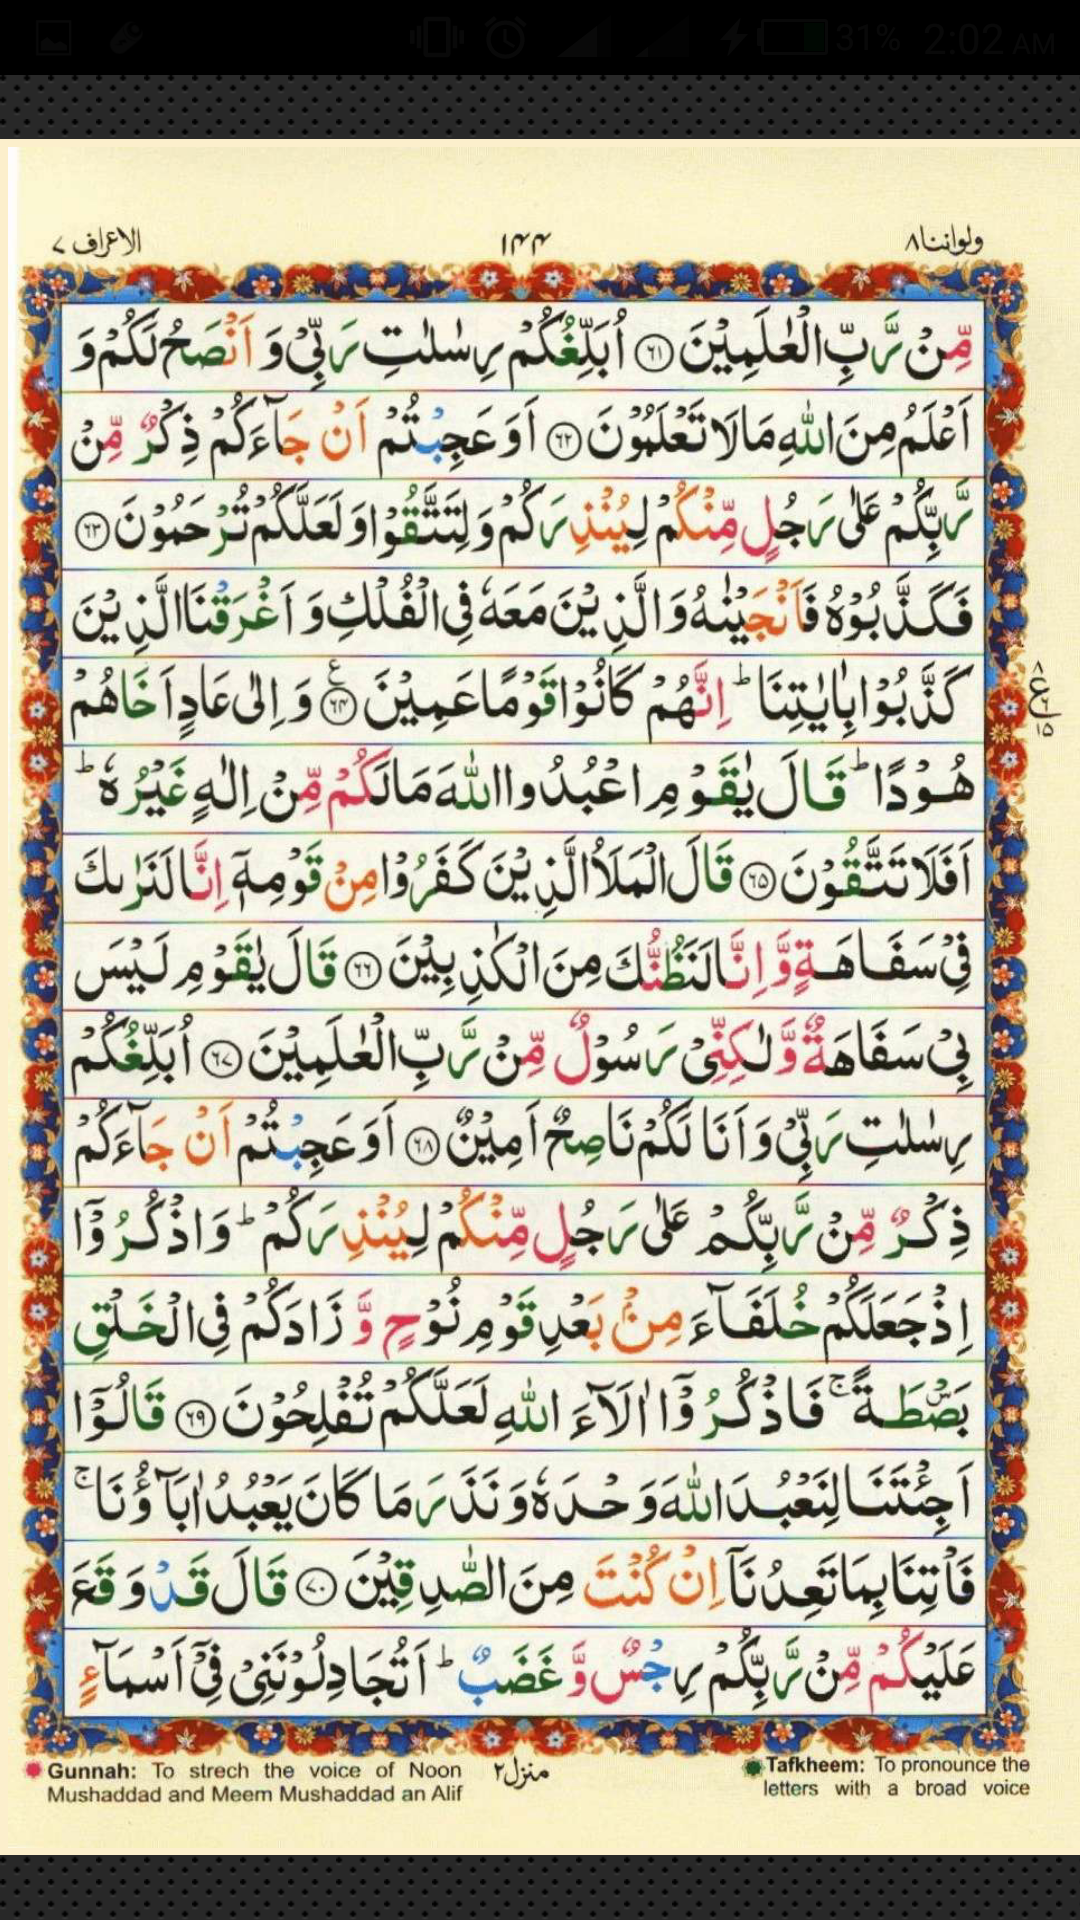 31% 2:02 AM
ولواننا ۸ ۱۴۴ الاعراف ۷
مِّنْ رَّبِّ الْعٰلَمِيْنَ ﴿۶۱﴾ اُبَلِّغُكُمْ رِسٰلٰتِ رَبِّيْ وَ اَنْصَحُ لَكُمْ وَ
اَعْلَمُ مِنَ اللّٰهِ مَا لَا تَعْلَمُوْنَ ﴿۶۲﴾ اَوَ عَجِبْتُمْ اَنْ جَآءَكُمْ ذِكْرٌ مِّنْ
رَّبِّكُمْ عَلٰى رَجُلٍ مِّنْكُمْ لِيُنْذِرَكُمْ وَ لِتَتَّقُوْا وَ لَعَلَّكُمْ تُرْحَمُوْنَ ﴿۶۳﴾
فَكَذَّبُوْهُ فَاَنْجَيْنٰهُ وَ الَّذِيْنَ مَعَهٗ فِي الْفُلْكِ وَ اَغْرَقْنَا الَّذِيْنَ
كَذَّبُوْا بِاٰيٰتِنَا ؕ اِنَّهُمْ كَانُوْا قَوْمًا عَمِيْنَ ﴿۶۴﴾ ع وَ اِلٰى عَادٍ اَخَاهُمْ
۸ ع ۶ ۱۵
هُوْدًا ؕ قَالَ يٰقَوْمِ اعْبُدُوا اللّٰهَ مَا لَكُمْ مِّنْ اِلٰهٍ غَيْرُهٗ ؕ
اَفَلَا تَتَّقُوْنَ ﴿۶۵﴾ قَالَ الْمَلَاُ الَّذِيْنَ كَفَرُوْا مِنْ قَوْمِهٖٓ اِنَّا لَنَرٰىكَ
فِيْ سَفَاهَةٍ وَّ اِنَّا لَنَظُنُّكَ مِنَ الْكٰذِبِيْنَ ﴿۶۶﴾ قَالَ يٰقَوْمِ لَيْسَ
بِيْ سَفَاهَةٌ وَّ لٰكِنِّيْ رَسُوْلٌ مِّنْ رَّبِّ الْعٰلَمِيْنَ ﴿۶۷﴾ اُبَلِّغُكُمْ
رِسٰلٰتِ رَبِّيْ وَ اَنَا لَكُمْ نَاصِحٌ اَمِيْنٌ ﴿۶۸﴾ اَوَ عَجِبْتُمْ اَنْ جَآءَكُمْ
ذِكْرٌ مِّنْ رَّبِّكُمْ عَلٰى رَجُلٍ مِّنْكُمْ لِيُنْذِرَكُمْ ؕ وَ اذْكُرُوْٓا
اِذْ جَعَلَكُمْ خُلَفَآءَ مِنْۢ بَعْدِ قَوْمِ نُوْحٍ وَّ زَادَكُمْ فِي الْخَلْقِ
بَصْۜطَةً ۚ فَاذْكُرُوْٓا اٰلَآءَ اللّٰهِ لَعَلَّكُمْ تُفْلِحُوْنَ ﴿۶۹﴾ قَالُوْٓا
اَجِئْتَنَا لِنَعْبُدَ اللّٰهَ وَحْدَهٗ وَ نَذَرَ مَا كَانَ يَعْبُدُ اٰبَآؤُنَا ۚ
فَاْتِنَا بِمَا تَعِدُنَآ اِنْ كُنْتَ مِنَ الصّٰدِقِيْنَ ﴿۷۰﴾ قَالَ قَدْ وَقَعَ
عَلَيْكُمْ مِّنْ رَّبِّكُمْ رِجْسٌ وَّ غَضَبٌ ؕ اَتُجَادِلُوْنَنِيْ فِيْٓ اَسْمَآءٍ
Gunnah: To strech the voice of Noon
Mushaddad and Meem Mushaddad an Alif
منزل ۲
Tafkheem: To pronounce the
letters with a broad voice